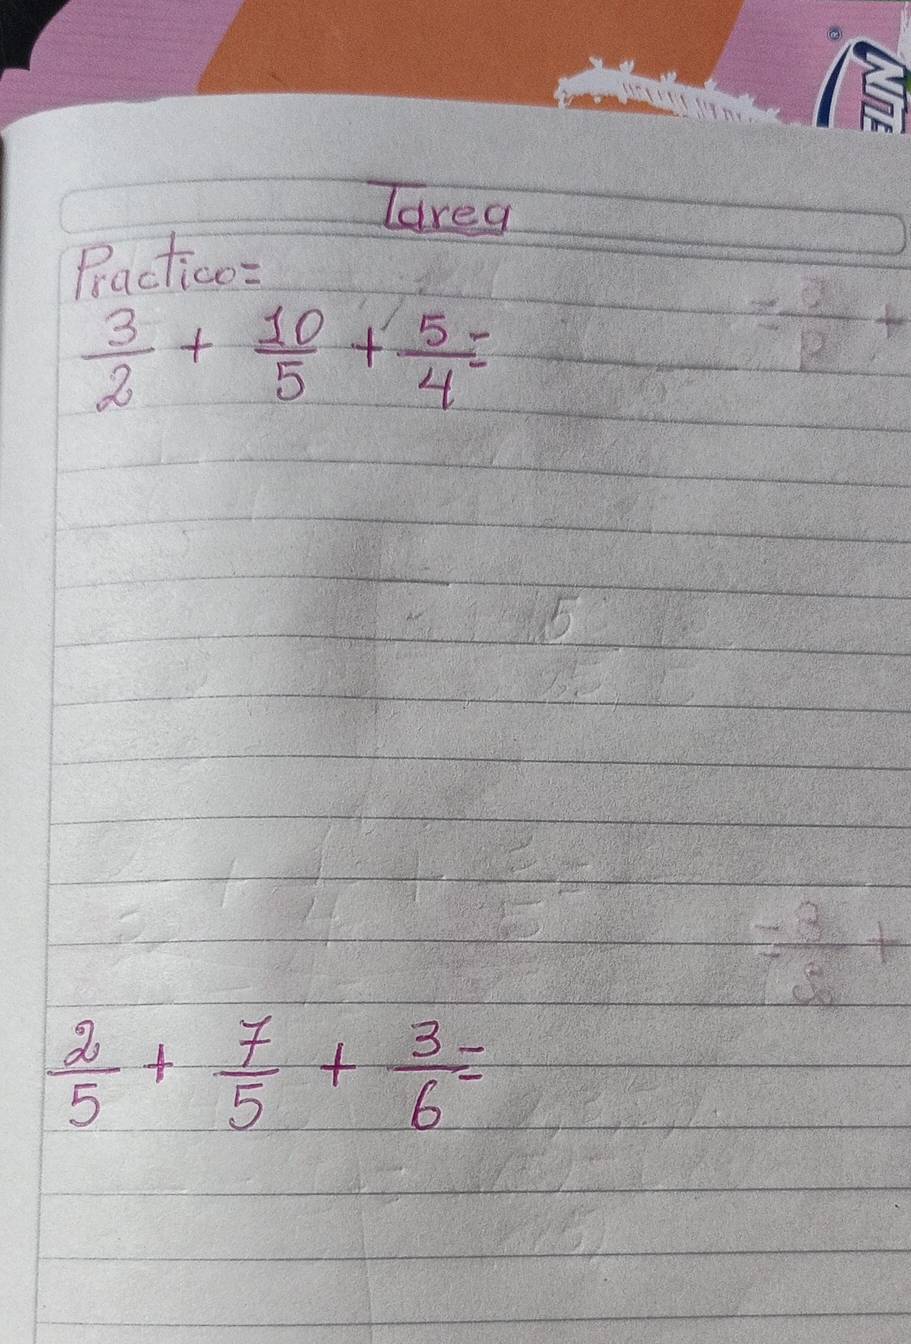 Tarea
Practico=
3/2 + 10/5 + 5/4 =
2/5 + 7/5 + 3/6 =